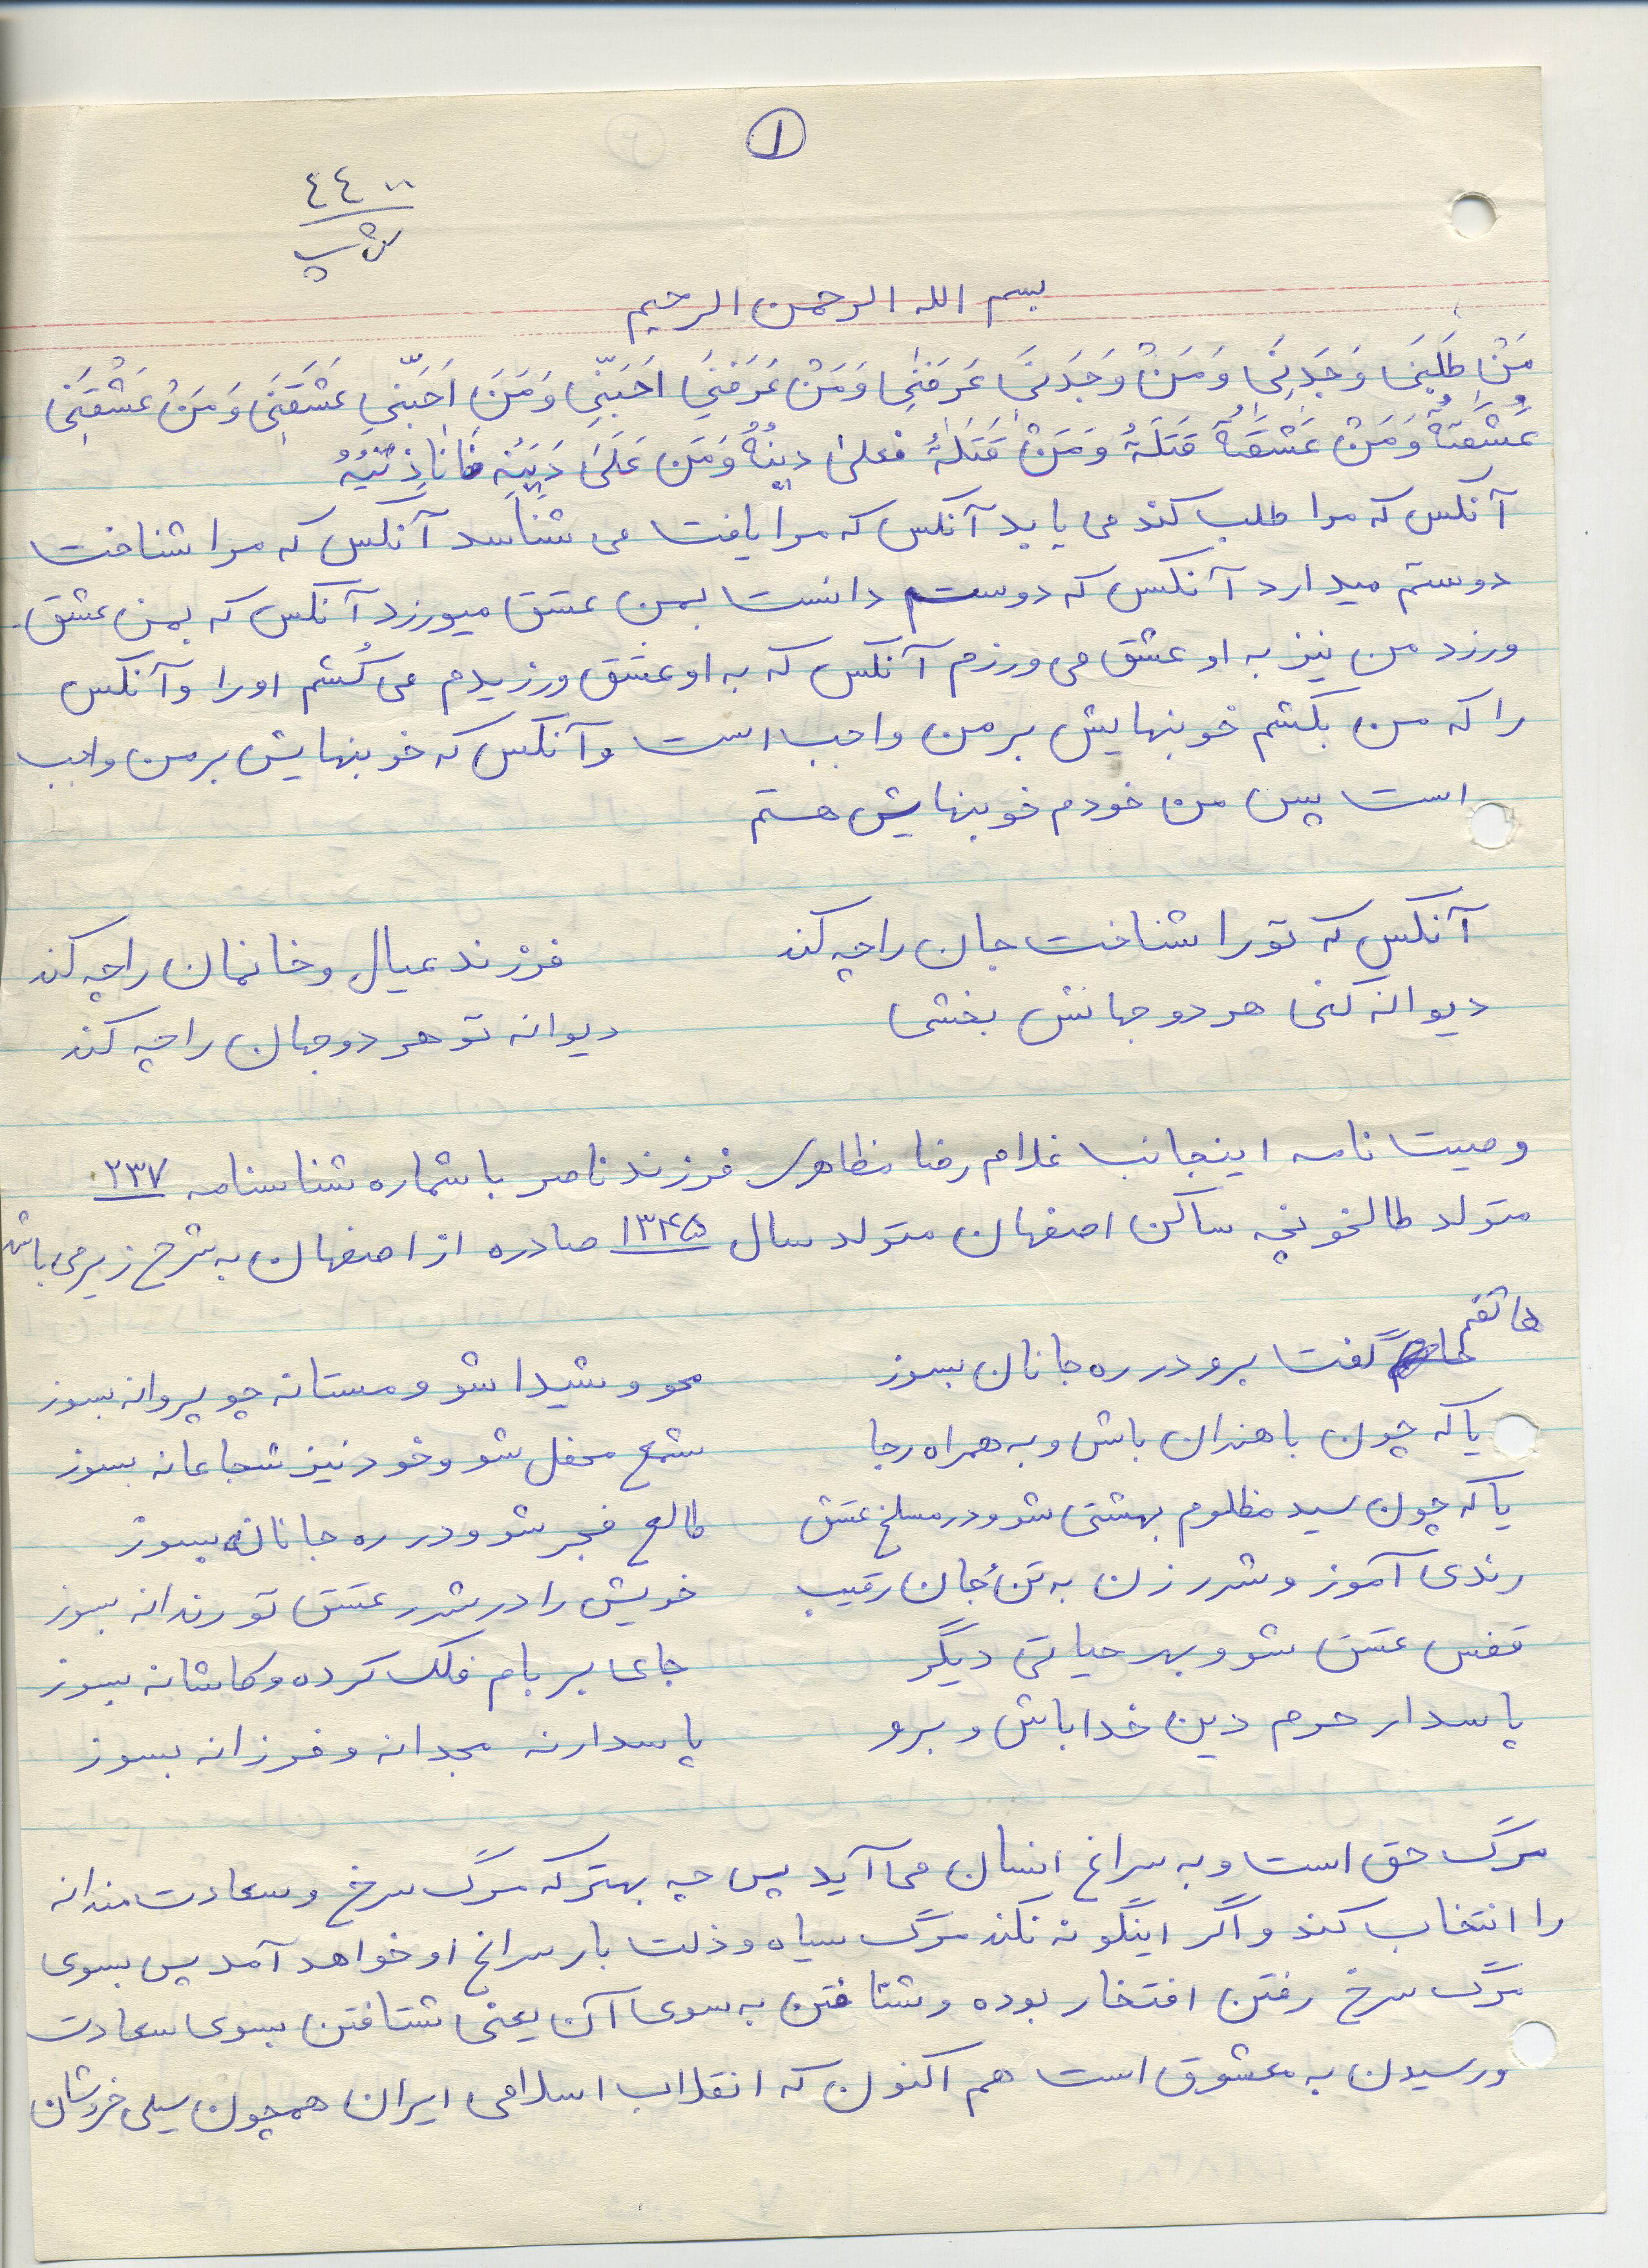 ۱
۴۴۰۰
بسم الله الرحمن الرحیم
مَنْ طَلَبَنی وَجَدَنی وَ مَنْ وَجَدَنی عَرَفَنی وَ مَنْ عَرَفَنی اَحَبَّنی وَ مَنَ اَحَبَّنی عَشَقَنَی وَ مَنْ عَشَقَنی
عَشَقتَهُ وَ مَنْ عَشَقتَهُ قَتَلَتَهُ وَ مَنْ قَتَلَتَهُ فَعلیٰ دیتُهُ وَ مَن عَلَیَ دَیَتِه فَاَنا دِیَتُهُ
آنکس که مرا طلب کند می یابد آنکس که مرا یافت می شناسد آنکس که مرا شناخت
دوستم میدارد آنکس که دوستم دانست بمن عشق میورزد آنکس که بمن عشق
ورزد من نیز به او عشق می ورزم آنکس که به او عشق ورزیدم می کُشم او را و آنکس
را که من بکشم خونبهایش بر من واجب است و آنکس که خونبهایش بر من واجب
است پس من خودم خونبهایش هستم
آنکس که تو را شناخت جان را چه کند فرزند عیال و خانمان را چه کند
دیوانه کنی هر دو جهانش بخشی دیوانه تو هر دو جهان را چه کند
وصیت نامه اینجانب غلام رضا مظاهری فرزند ناصر با شماره شناسنامه ۲۳۷
متولد طالخونچه ساکن اصفهان متولد سال ۱۳۴۵ صادره از اصفهان به شرح زیر می باشد
هاتفم گفت برو در ره جانان بسوز محو و شیدا شو و مستانه چو پروانه بسوز
یا که چون باهنران باش و به همراه رجا شمع محفل شو و خود نیز شجاعانه بسوز
یا که چون سید مظلوم بهشتی شو و در مسلخ عشق طالع فجر شو و در ره جانانه بسوز
رندی آموز و شرر زن به تن و جان رقیب خویش را در شرر عشق تو رندانه بسوز
قفس عشق شو و بهر حیاتی دیگر جای بر بام فلک کرده و کاشانه بسوز
پاسدار حرم دین خدا باش و برو پاسدارنه مجدانه و فرزانه بسوز
مرگ حق است و به سراغ انسان می آید پس چه بهتر که مرگ سرخ و سعادت مندانه
را انتخاب کند و اگر اینگونه نکند مرگ سیاه و ذلت بار سراغ او خواهد آمد پس بسوی
مرگ سرخ رفتن افتخار بوده و شتافتن به سوی آن یعنی شتافتن بسوی سعادت
و رسیدن به معشوق است هم اکنون که انقلاب اسلامی ایران همچون سیلی خروشان